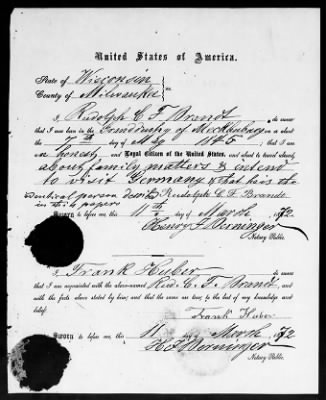 United States of America.
State of Wisconsin
County of Milwaukee } ss.
I, Rudolph C F Brandt, do swear
that I was born in the Granddutchy of Mecklenburg on or about
the 7th day of May 1845; that I am
an honest, and Loyal Citizen of the United States, and about to travel abroad,
about family matters & intend
to visit Germany & that he is the
identical person described Rudolph C. F. Brandt
in this papers
Sworn to before me, this 11th day of March, 1872
Henry F
Notary Public.
I, Frank Huber, do swear
that I am acquainted with the above-named Rud. C. F. Brandt, and
with the facts above stated by him; and that the same are true, to the best of my knowledge and
belief.
Frank Huber
Sworn to before me, this 11 day of March, 1872
H F
Notary Public.